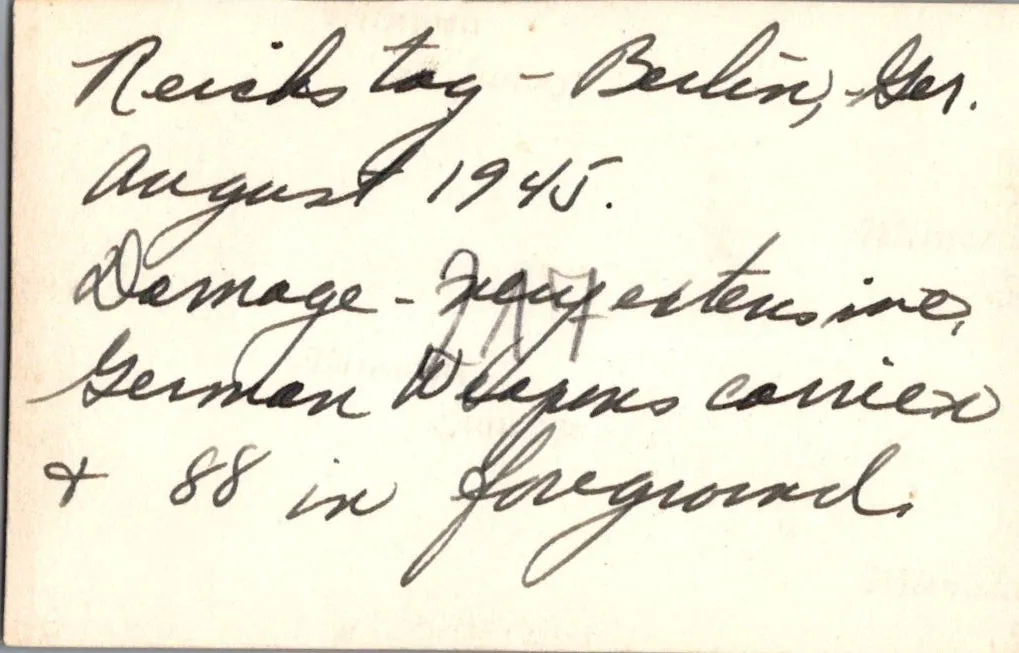 Reichstag - Berlin, Ger.
August 1945.
Damage - very extensive,
German Weapons carrier
+ 88 in foreground.